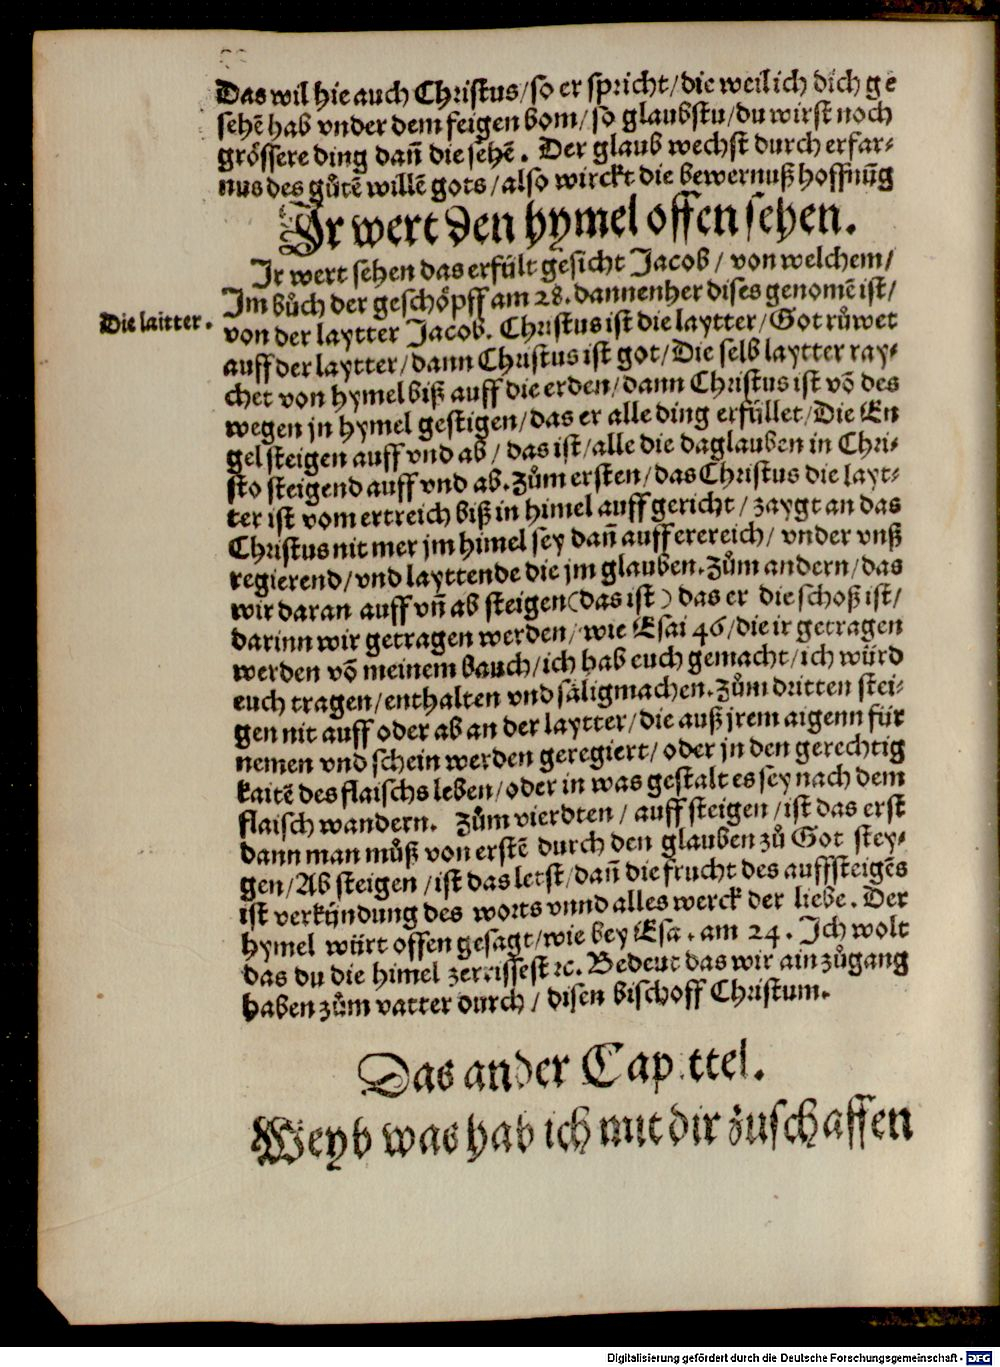 Das wil hie auch Christus/ so er spricht/ die weil ich dich ge
sehē hab vnder dem feigen bom/ so glaubstu/ du wirst noch
grössere ding dañ die sehē. Der glaub wechst durch erfar-
nus des gůtē willē gots/ also wirckt die bewernuß hoffnūg
Ir wert den hymel offen sehen.
Ir wert sehen das erfült gesicht Jacob/ von welchem/
Im bůch der geschöpff am 28. dannenher dises genomē ist/
Die laitter.
von der laytter Jacob. Christus ist die laytter/ Got růwet
auff der laytter/ dann Christus ist got/ Die selb laytter ray-
chet von hymel biß auff die erden/ dann Christus ist vō des
wegen jn hymel gestigen/ das er alle ding erfüllet/ Die En
gel steigen auff vnd ab/ das ist/ alle die da glauben in Chri-
sto steigend auff vnd ab. Zům ersten/ das Christus die layt-
ter ist vom ertreich biß in himel auff gericht/ zaygt an das
Christus nit mer jm himel sey dañ auff erereich/ vnder vnß
regierend/ vnd layttende die jm glauben. Zům andern/ das
wir daran auff vñ ab steigen (das ist) das er die schoß ist/
darinn wir getragen werden/ wie Esai 46/ die ir getragen
werden vō meinem bauch/ ich hab euch gemacht/ ich würd
euch tragen/ enthalten vnd säligmachen. Zům dritten stei-
gen nit auff oder ab an der laytter/ die auß jrem aigenn für
nemen vnd schein werden geregiert/ oder jn den gerechtig
kaitē des flaischs leben/ oder in was gestalt es sey nach dem
flaisch wandern. Zům vierdten/ auff steigen/ ist das erst
dann man můß von erstē durch den glauben zů Got stey-
gen/ Ab steigen/ ist das letst/ dañ die frucht des auffsteigēs
ist verkündung des worts vnnd alles werck der liebe. Der
hymel würt offen gesagt/ wie bey Esa. am 24. Ich wolt
das du die himel zerrissest ꝛc. Bedeut das wir ain zůgang
haben zům vatter durch/ disen bischoff Christum.
Das ander Capittel.
Weyb was hab ich mit dir zuschaffen
Digitalisierung gefördert durch die Deutsche Forschungsgemeinschaft - DFG